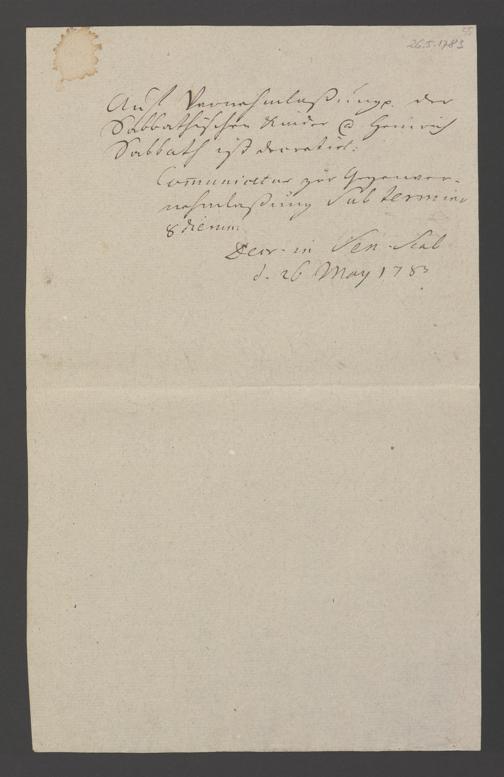 55
26.5.1783
Auf Vernehmlaßung p. der
Sabbathischen Kinder @ Heinrich
Sabbath ist decretirt:
Comunicetur zur Gegenver-
nehmlaßung Sub termino
8 dierum
Decr. in Sen. Scab
d. 26 May 1783